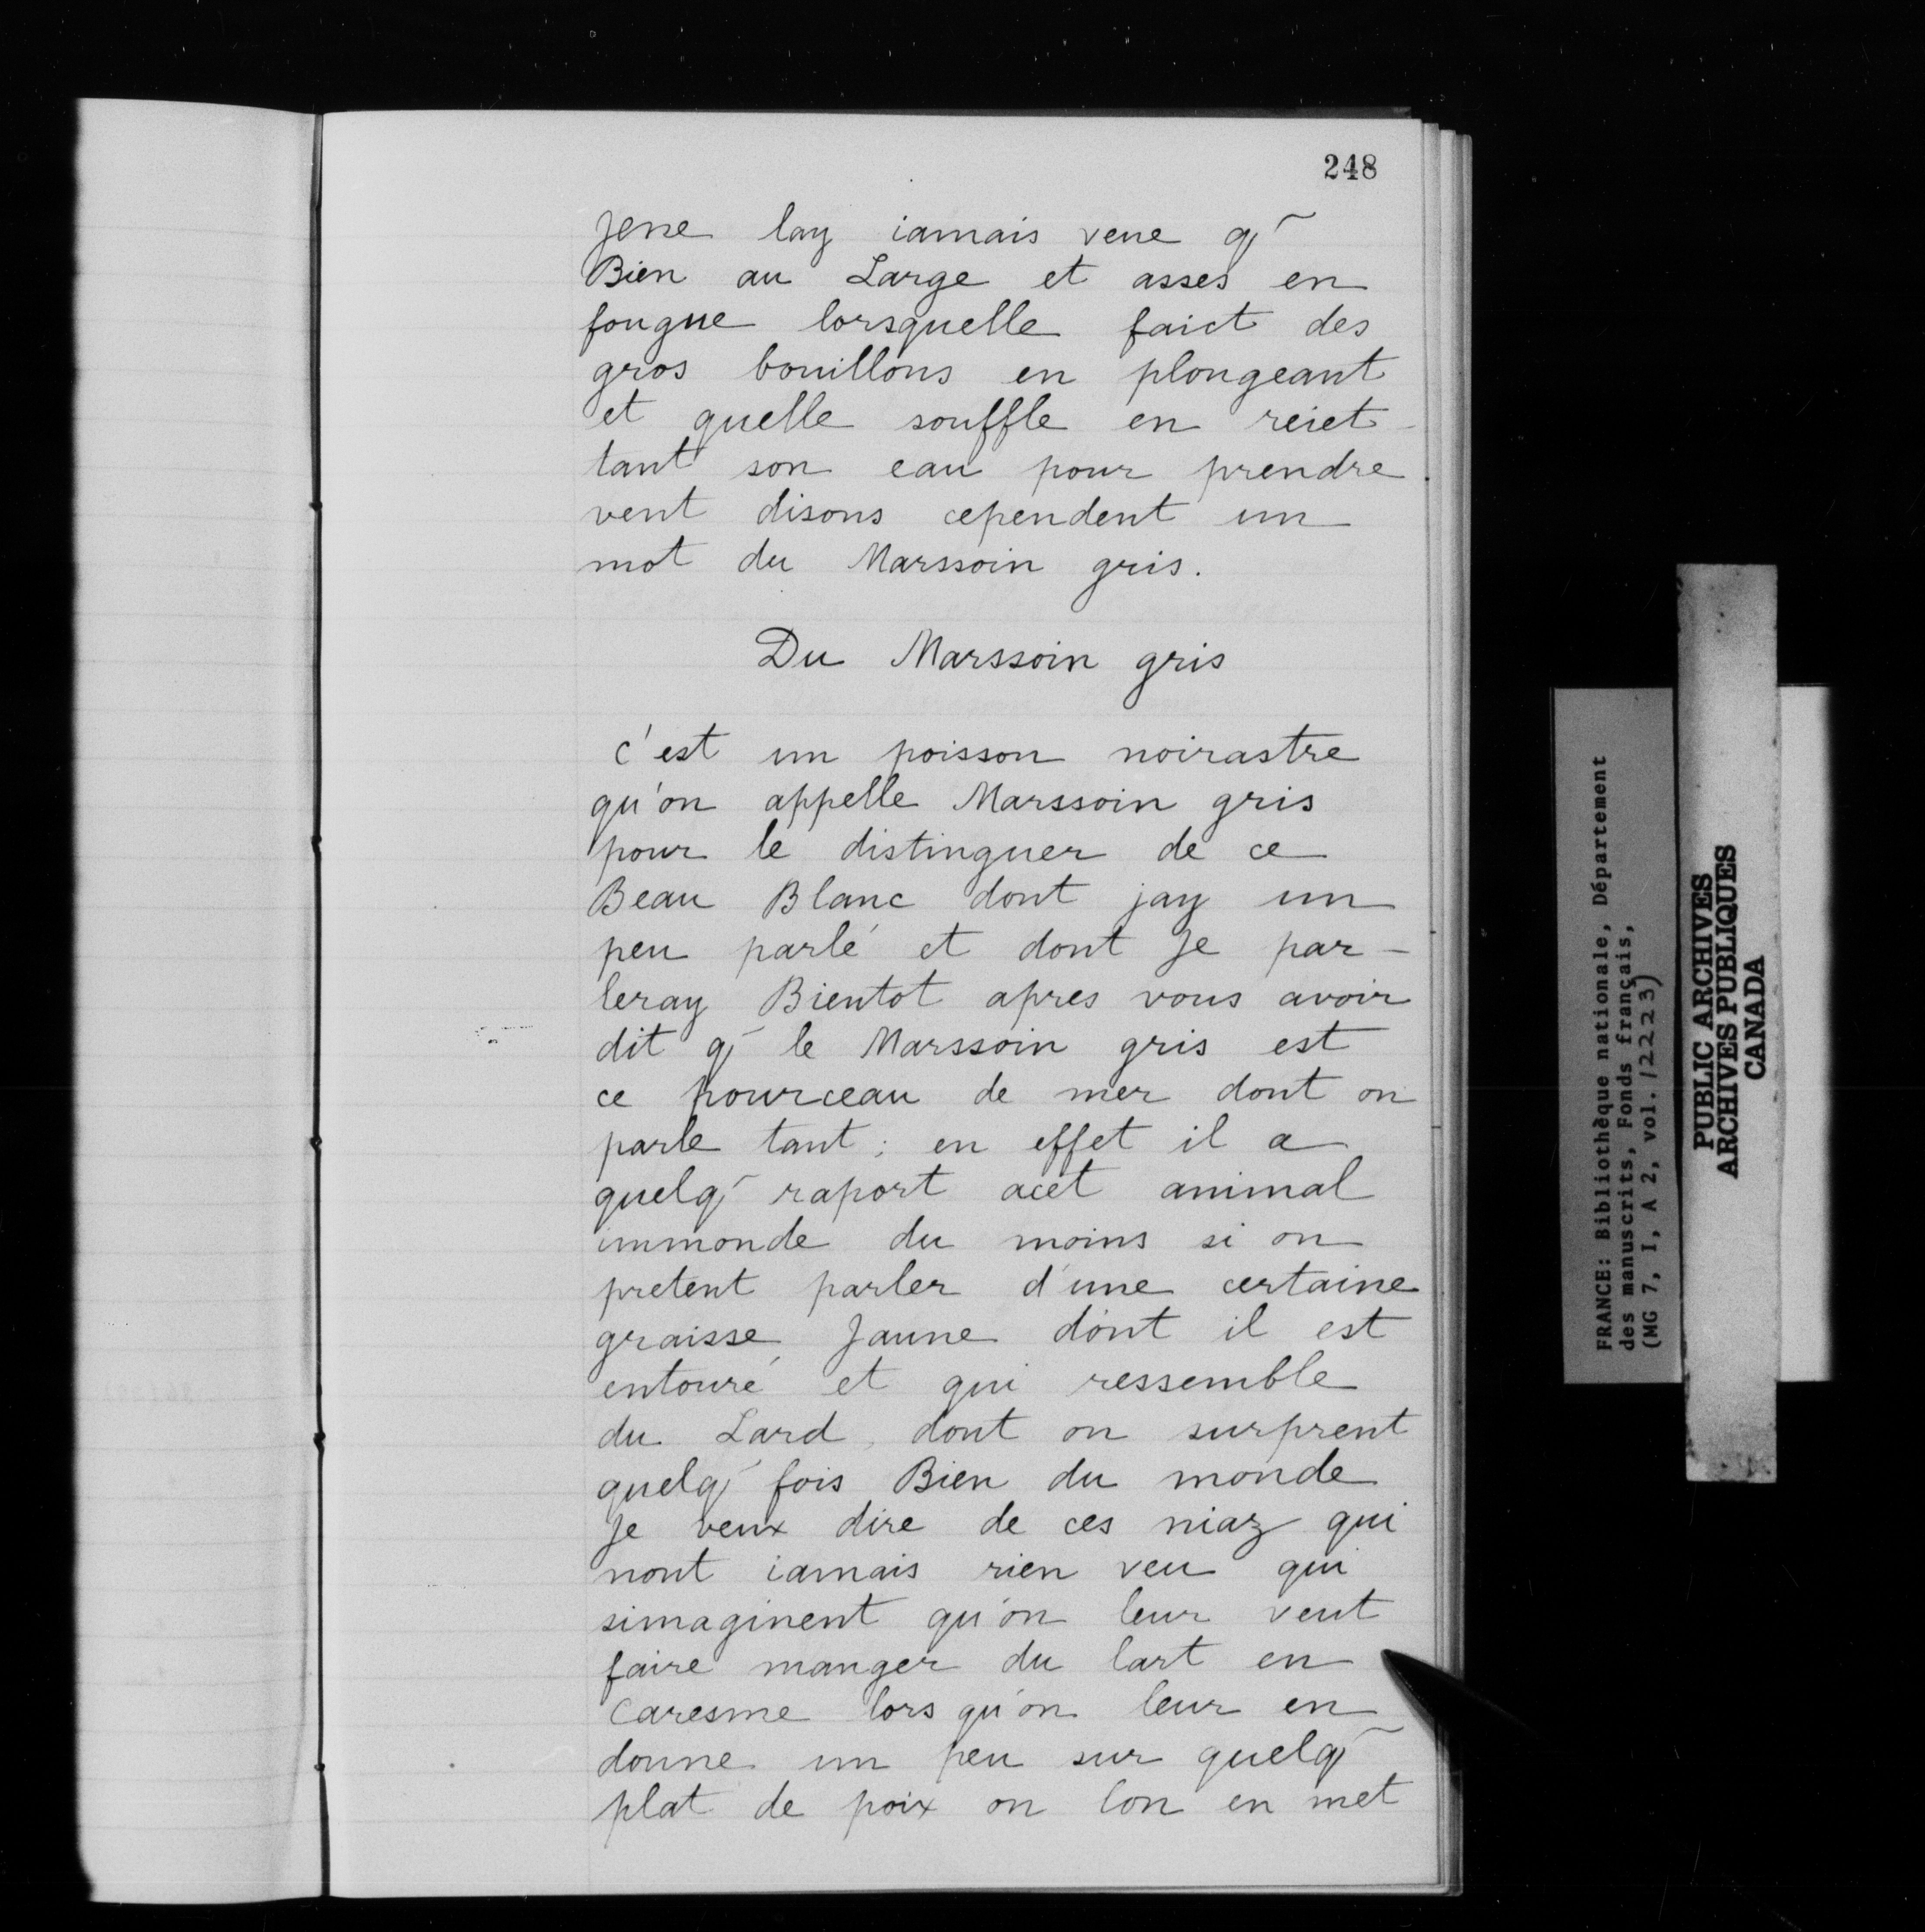 248
Jene lay iamais veue q̃
Bien au Large et asses en
fougue lorsquelle faict des
gros bouillons en plongeant
et quelle souffle en reiet-
tant son eau pour prendre
vent disons cependent un
mot du Marssoin gris.
Du Marssoin gris
C'est un poisson noirastre
qu'on appelle Marssoin gris
pour le distinguer de ce
Beau Blanc dont jay un
peu parlé et dont Je par-
leray Bientot apres vous avoir
dit q̃ le Marssoin gris est
ce pourceau de mer dont on
parle tant; en effet il a
quelq̃ raport acet animal
immonde du moins si on
pretent parler d'une certaine
graisse Jaune dont il est
entouré et qui ressemble
du Lard, dont on surprent
quelq̃ fois Bien du monde
Je veux dire de ces niaz qui
nont iamais rien veu qui
simaginent qu'on leur veut
faire manger du lart en
Caresme lors qu'on leur en
donne un peu sur quelq̃
plat de poix ou lon en met
FRANCE: Bibliothèque nationale, Département
des manuscrits, Fonds français,
(MG 7, I, A 2, vol. 12223)
PUBLIC ARCHIVES
ARCHIVES PUBLIQUES
CANADA